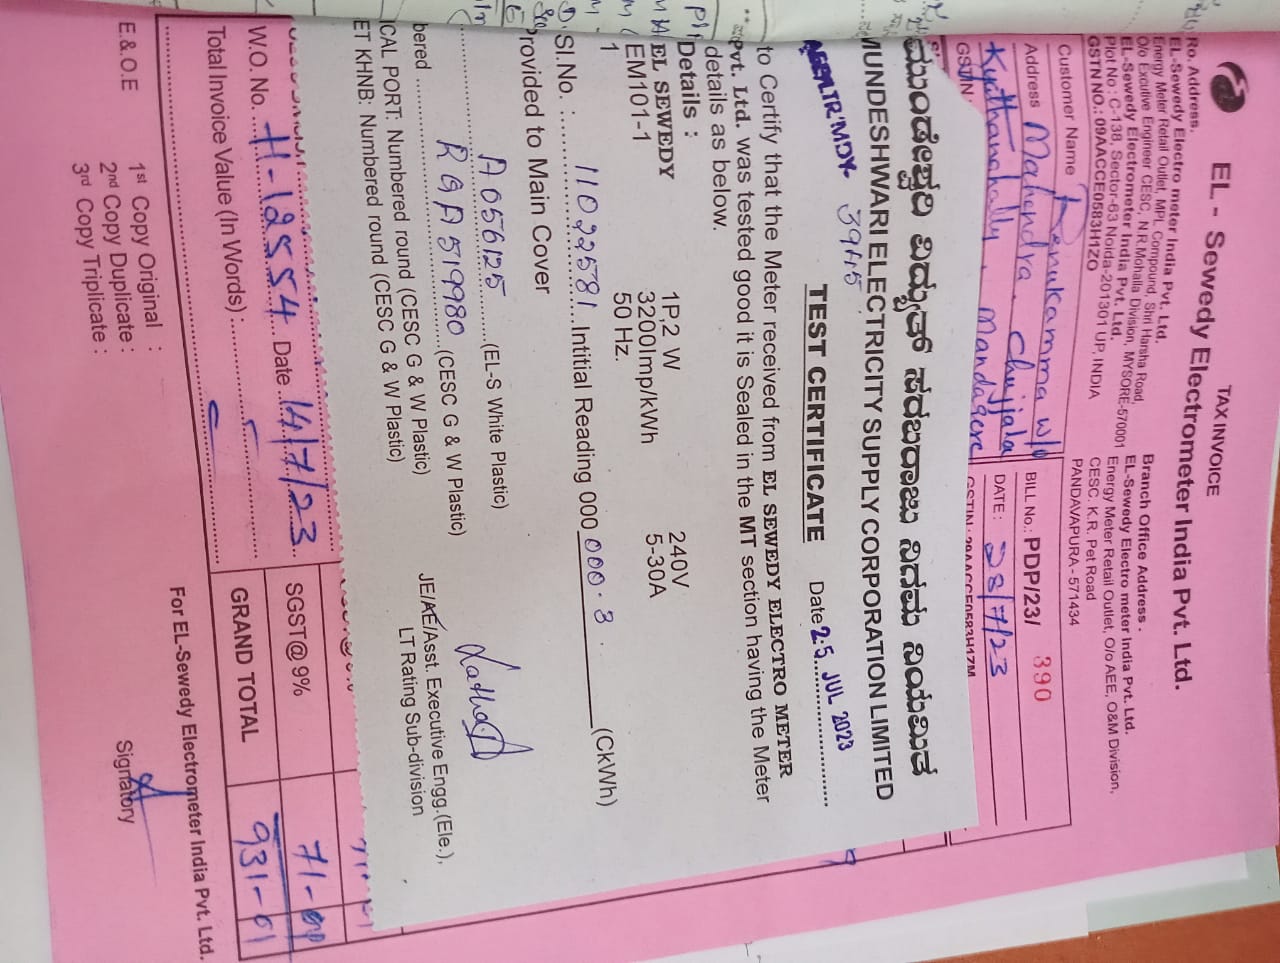 TAX INVOICE
EL - Sewedy Electrometer India Pvt. Ltd.
Ro. Address.
EL-Sewedy Electro meter India Pvt. Ltd.
Energy Meter Retail Outlet, MPL Compound, Shri Harsha Road,
O/o Excutive Engineer CESC, N.R.Mohalla Division, MYSORE-570001
EL-Sewedy Electrometer India Pvt. Ltd.
Plot No : C-138, Sector-63 Noida-201301 UP, INDIA
GSTN NO. : 09AACCE0583H1ZO
Branch Office Address .
EL-Sewedy Electro meter India Pvt. Ltd.
Energy Meter Retail Outlet, O/o AEE, O&M Division,
CESC. K.R. Pet Road
PANDAVAPURA - 571434
Customer Name Renukamma w/o
Address Mahendra. Chujjala
Kyathanahally, Mandagere
GSTN
BILL No.: PDP/23/ 390
DATE : 28/7/23
ವಿದ್ಯುತ್ ಸರಬರಾಜು ನಿಗಮ ನಿಯಮಿತ
MUNDESHWARI ELECTRICITY SUPPLY CORPORATION LIMITED
39415
TEST CERTIFICATE Date 25 JUL 2023
to Certify that the Meter received from EL SEWEDY ELECTRO METER
Pvt. Ltd. was tested good it is Sealed in the MT section having the Meter
details as below.
Details :
EL SEWEDY 1P,2 W 240V
EM101-1 3200Imp/kWh 5-30A
1 50 Hz.
Sl.No. : 11022581 Intitial Reading 000 000.3 (CkWh)
Provided to Main Cover
A056125 (EL-S White Plastic)
RGA519980 (CESC G & W Plastic)
bered (CESC G & W Plastic)
ICAL PORT: Numbered round (CESC G & W Plastic)
ET KHNB: Numbered round (CESC G & W Plastic)
JE/AE/Asst. Executive Engg.(Ele.),
LT Rating Sub-division
W.O. No. H-12554 Date 14/7/23
SGST@ 9% 71-
Total Invoice Value (In Words) :
GRAND TOTAL 931-01
E.& O.E
1st Copy Original :
2nd Copy Duplicate :
3rd Copy Triplicate :
For EL-Sewedy Electrometer India Pvt. Ltd.
Signatory